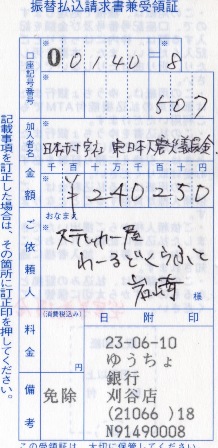 振替払込請求書兼受領証
口座記号番号
00140-8
507
加入者名
日本赤十字社 東日本大震災義援金
金額
千 百 十 万 千 百 十 円
¥240250
ご依頼人
おなまえ
ステッカー屋
わーるどくらふと
岩崎
様
料金
(消費税込み)
円
日 附 印
備考
免除
23-06-10
ゆうちょ
銀行
刈谷店
(21066 )18
N91490008
記載事項を訂正した場合は、その箇所に訂正印を押してください。
この受領証は、大切に保管してください。